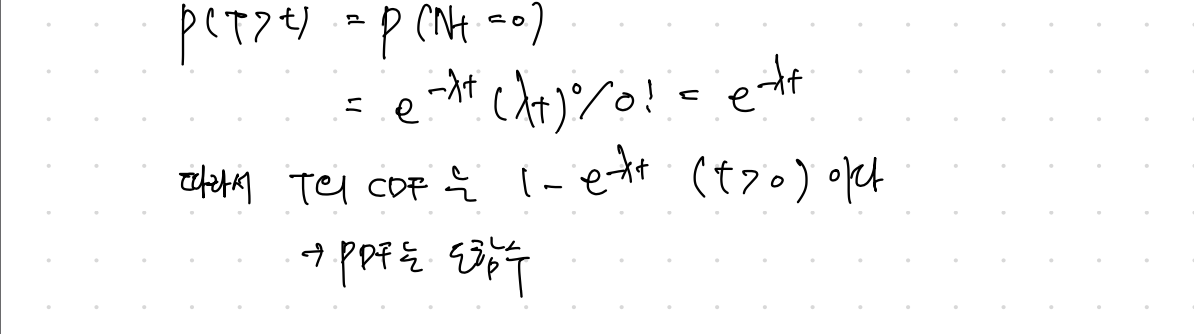 P(T>t) = P(Nt=0)
= e^-λt (λt)^0/0! = e^-λt
따라서 T의 CDF는 1-e^-λt (t>0) 이다
→ PDF는 도함수